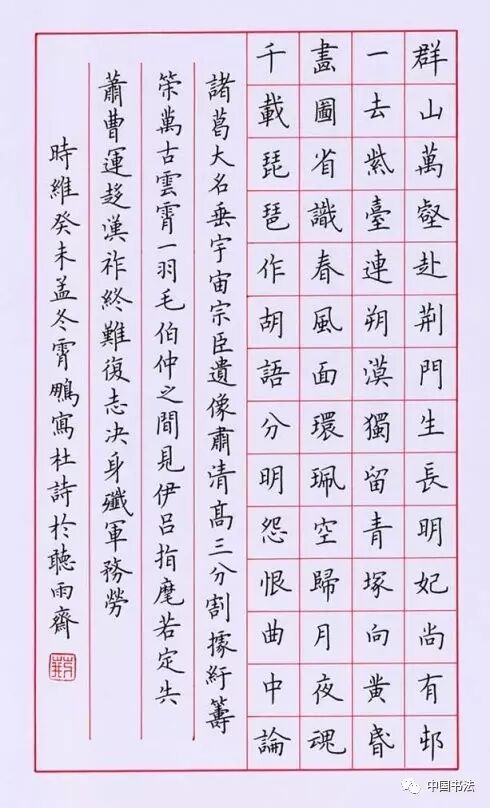 群山萬壑赴荆門生長明妃尚有邨
一去紫臺連朔漠獨留青塚向黄昏
畫圖省識春風面環珮空歸月夜魂
千載琵琶作胡語分明怨恨曲中論
諸葛大名垂宇宙宗臣遺像肅清髙三分割據紆籌
筞萬古雲霄一羽毛伯仲之間見伊吕指麾若定失
蕭曹運趍漢祚終難復志决身殲軍務勞
時維癸未孟冬霄鵬寫杜詩於聽雨齋
中国书法